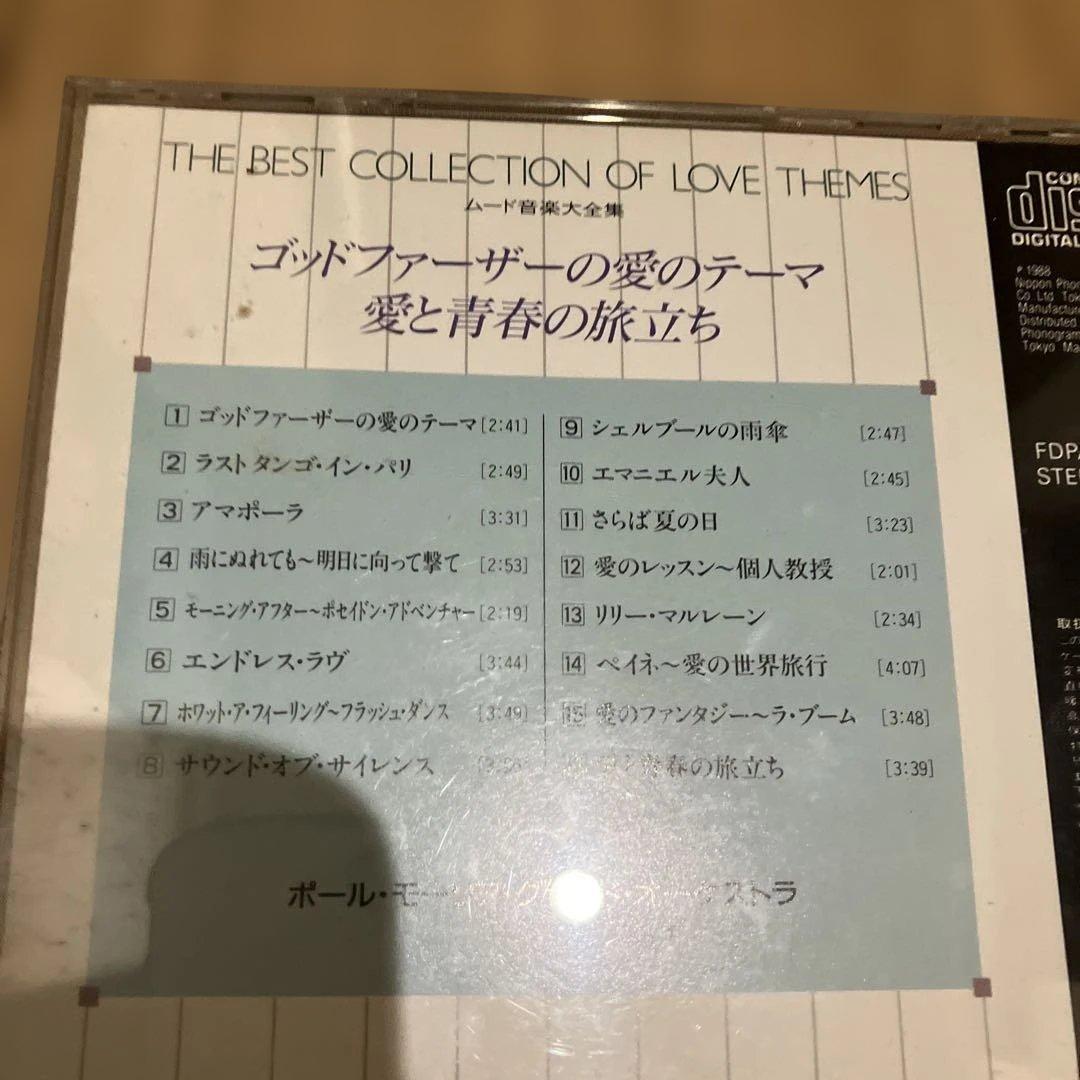 THE BEST COLLECTION OF LOVE THEMES
ムード音楽大全集
ゴッドファーザーの愛のテーマ
愛と青春の旅立ち
1 ゴッドファーザーの愛のテーマ [2:41]
2 ラストタンゴ・イン・パリ [2:49]
3 アマポーラ [3:31]
4 雨にぬれても〜明日に向って撃て [2:53]
5 モーニング・アフター〜ポセイドン・アドベンチャー [2:19]
6 エンドレス・ラヴ [3:44]
7 ホワット・ア・フィーリング〜フラッシュ・ダンス [3:49]
8 サウンド・オブ・サイレンス
9 シェルブールの雨傘 [2:47]
10 エマニエル夫人 [2:45]
11 さらば夏の日 [3:23]
12 愛のレッスン〜個人教授 [2:01]
13 リリー・マルレーン [2:34]
14 ペイネ〜愛の世界旅行 [4:07]
15 愛のファンタジー〜ラ・ブーム [3:48]
と青春の旅立ち [3:39]
ポール・モー
ケストラ
COM
dis
DIGITAL
℗ 1988
Nippon Phon
Co. Ltd. Tok
Manufacture
Distributed
Phonogram
Tokyo Ma
FDPA
STE
取扱